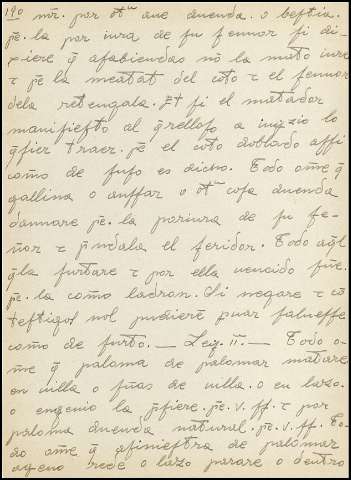 190 mr̃. por ot̃ aue duenda. o beſtia.
p̃e. la por iura de ſu ſennor ſi di-
xiere q̃ aſabiendas no la mato iure
τ p̃e la meatat del coto τ el ſennor
dela retengala. Et ſi el matador
manifieſto al q̃relloſo a iuyzio lo
q̃ſier traer. p̃e el coto doblado aſſi
como de ſuſo es dicho. Todo om̃e q̃
gallina o anſſar o ot̃ coſa duenda
dannare p̃e. la por iura de ſu ſe-
ñor τ p̃ndala el feridor. Todo aq̃l
q̃la furtare τ por ella uencido fũe.
p̃e. la como ladron. Si negare τ cõ
teſtigos nol pudierẽ puar ſalueſſe
como de furto. — Ley. II. — Todo o-
m̃e q̃ paloma de palomar matare
en uilla o fũas de uilla. o en lazo.
o engenio la p̃ſiere. p̃e. v. ſſ. τ por
paloma duenda natural. p̃e. v. ſſ. To-
do om̃e q̃ a finieſtra de palomar
ageno rede o lazo parare o dentro